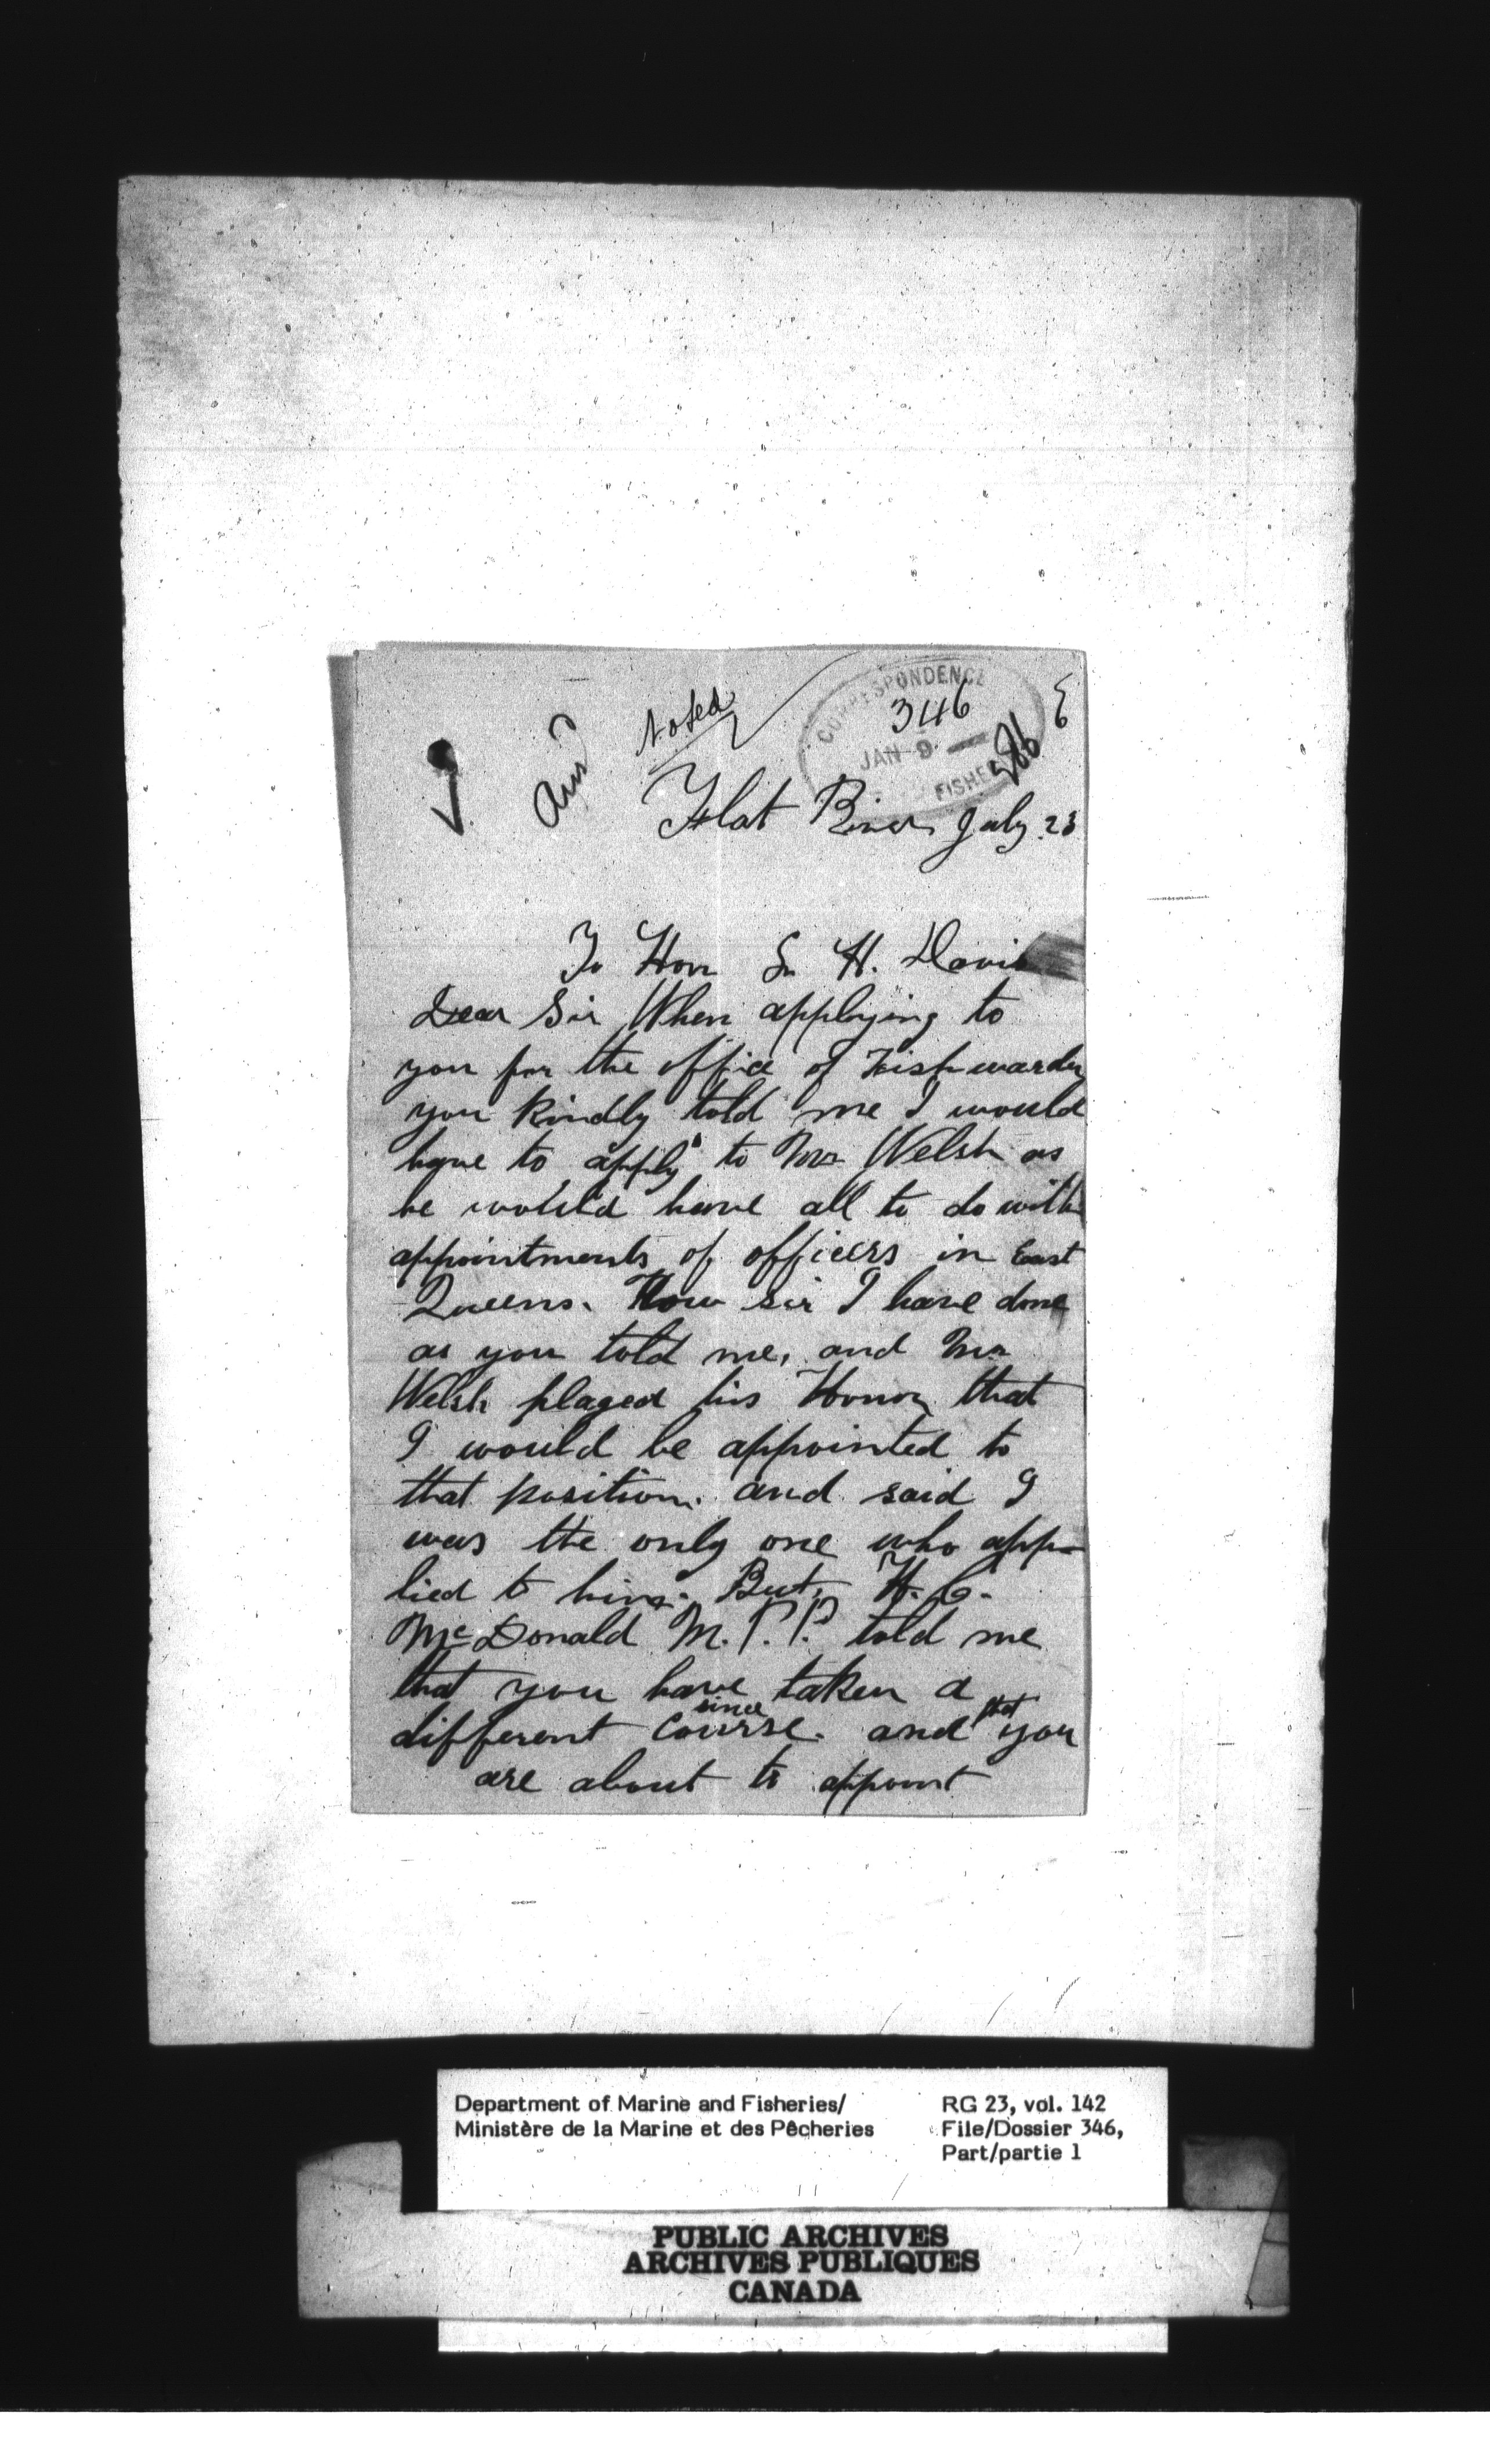 Noted
Ans
CORRESPONDENCE
346
JAN 9
FISHE
Flat River July 23
To Hon L. H. Davis
Dear Sir When applying to
you for the office of Fish warden
you Kindly told me I would
have to apply to Mr Welsh as
he would have all to do with
appointments of officers in East
Queens. Now sir I have done
as you told me, and Mr
Welsh plaged his Honor that
I would be appointed to
that position. and said I
was the only one who app-
lied to him. But, H. C.
McDonald M.P.P. told me
that you have taken a
different since course. and that you
are about to appoint
Department of Marine and Fisheries/
Ministère de la Marine et des Pêcheries
RG 23, vol. 142
File/Dossier 346,
Part/partie 1
PUBLIC ARCHIVES
ARCHIVES PUBLIQUES
CANADA